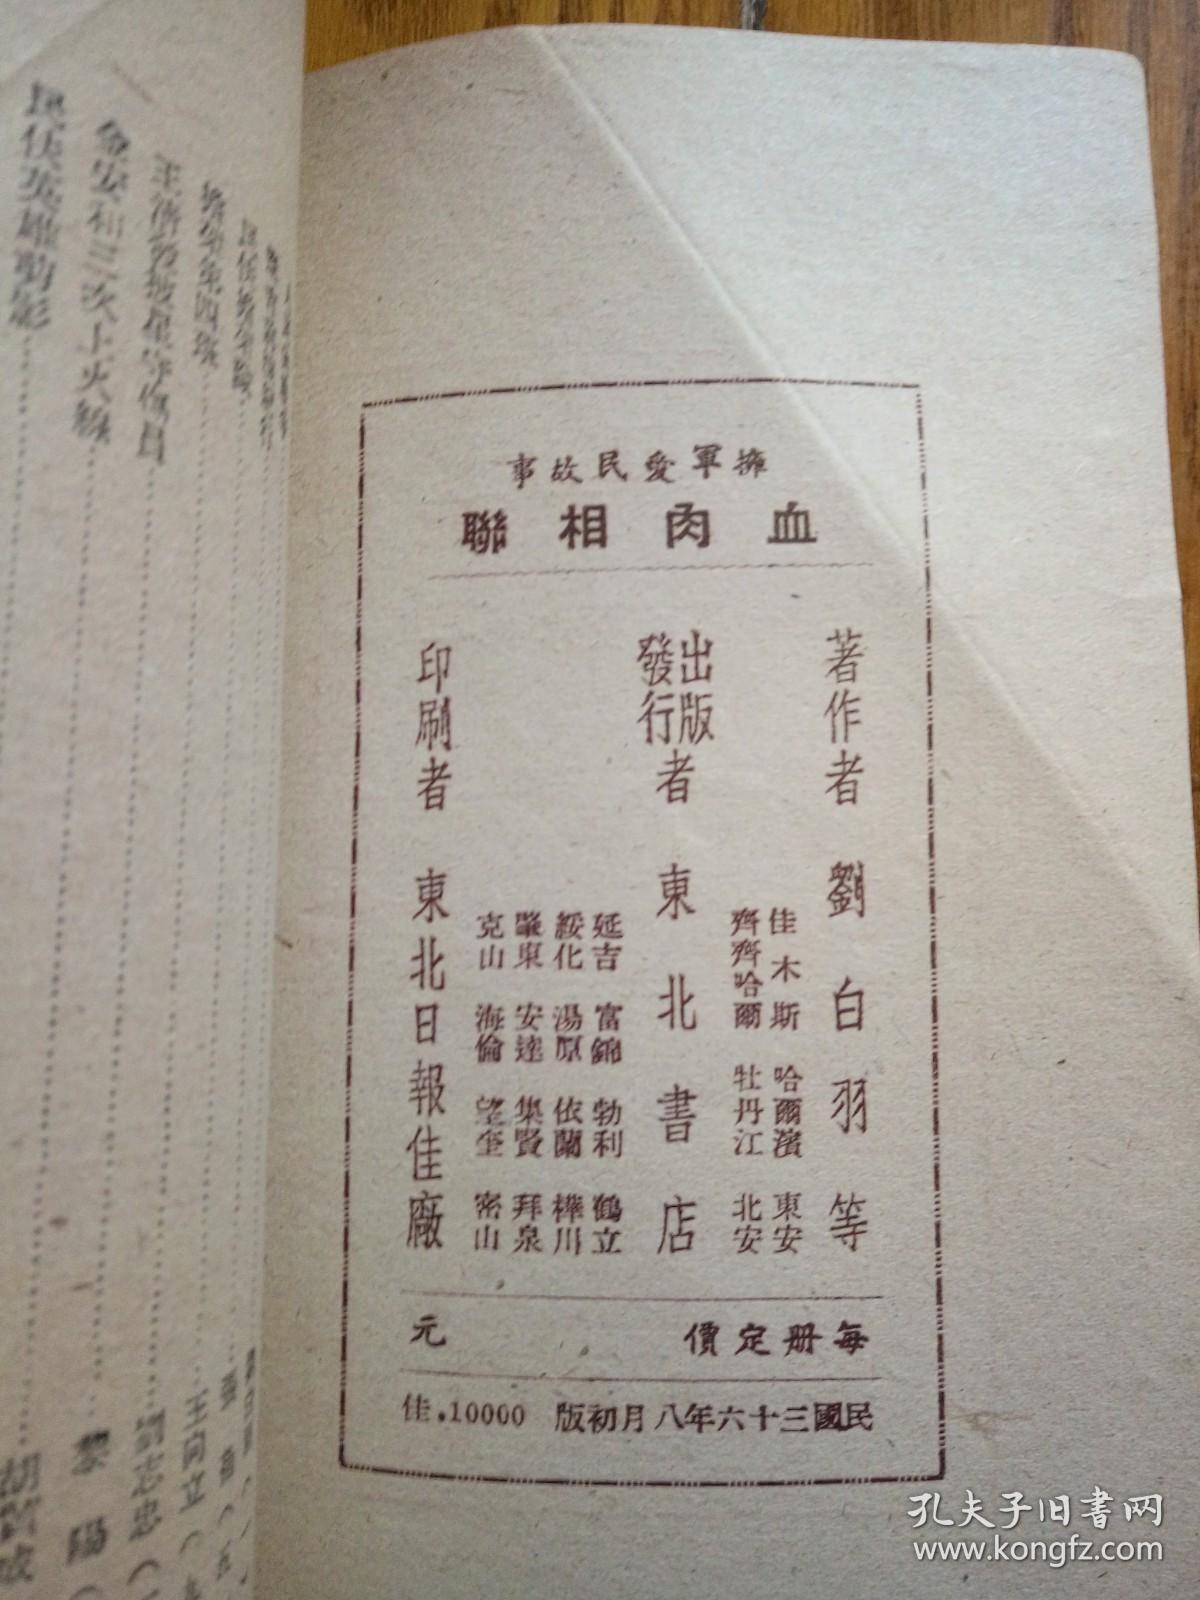 擁軍愛民故事
血肉相聯
著作者 劉白羽等
佳木斯 哈爾濱 東安
齊齊哈爾 牡丹江 北安
出版
發行
者 東北書店
延吉 富錦 勃利 鶴立
綏化 湯原 依蘭 樺川
肇東 安達 集賢 拜泉
克山 海倫 望奎 密山
印刷者 東北日報佳廠
每册定價 元
民國三十六年八月初版 10000.佳
金安和三次上火線
黎陽
王向立
孔夫子旧书网
www.kongfz.com